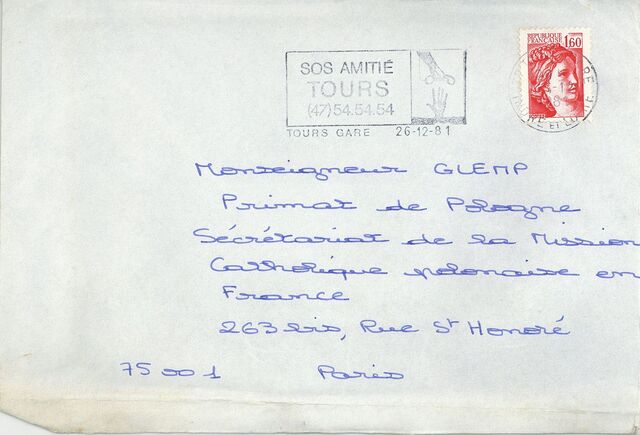 SOS AMITIÉ
TOURS
(47) 54.54.54
TOURS GARE 26-12-81
REPUBLIQUE
FRANÇAISE
1,60
INDRE ET LOIRE
Monseigneur GLEMP
Primat de Pologne
Sécrétariat de la Mission
Catholique polonaise en
France
263 bis, Rue St Honoré
75 001 Paris